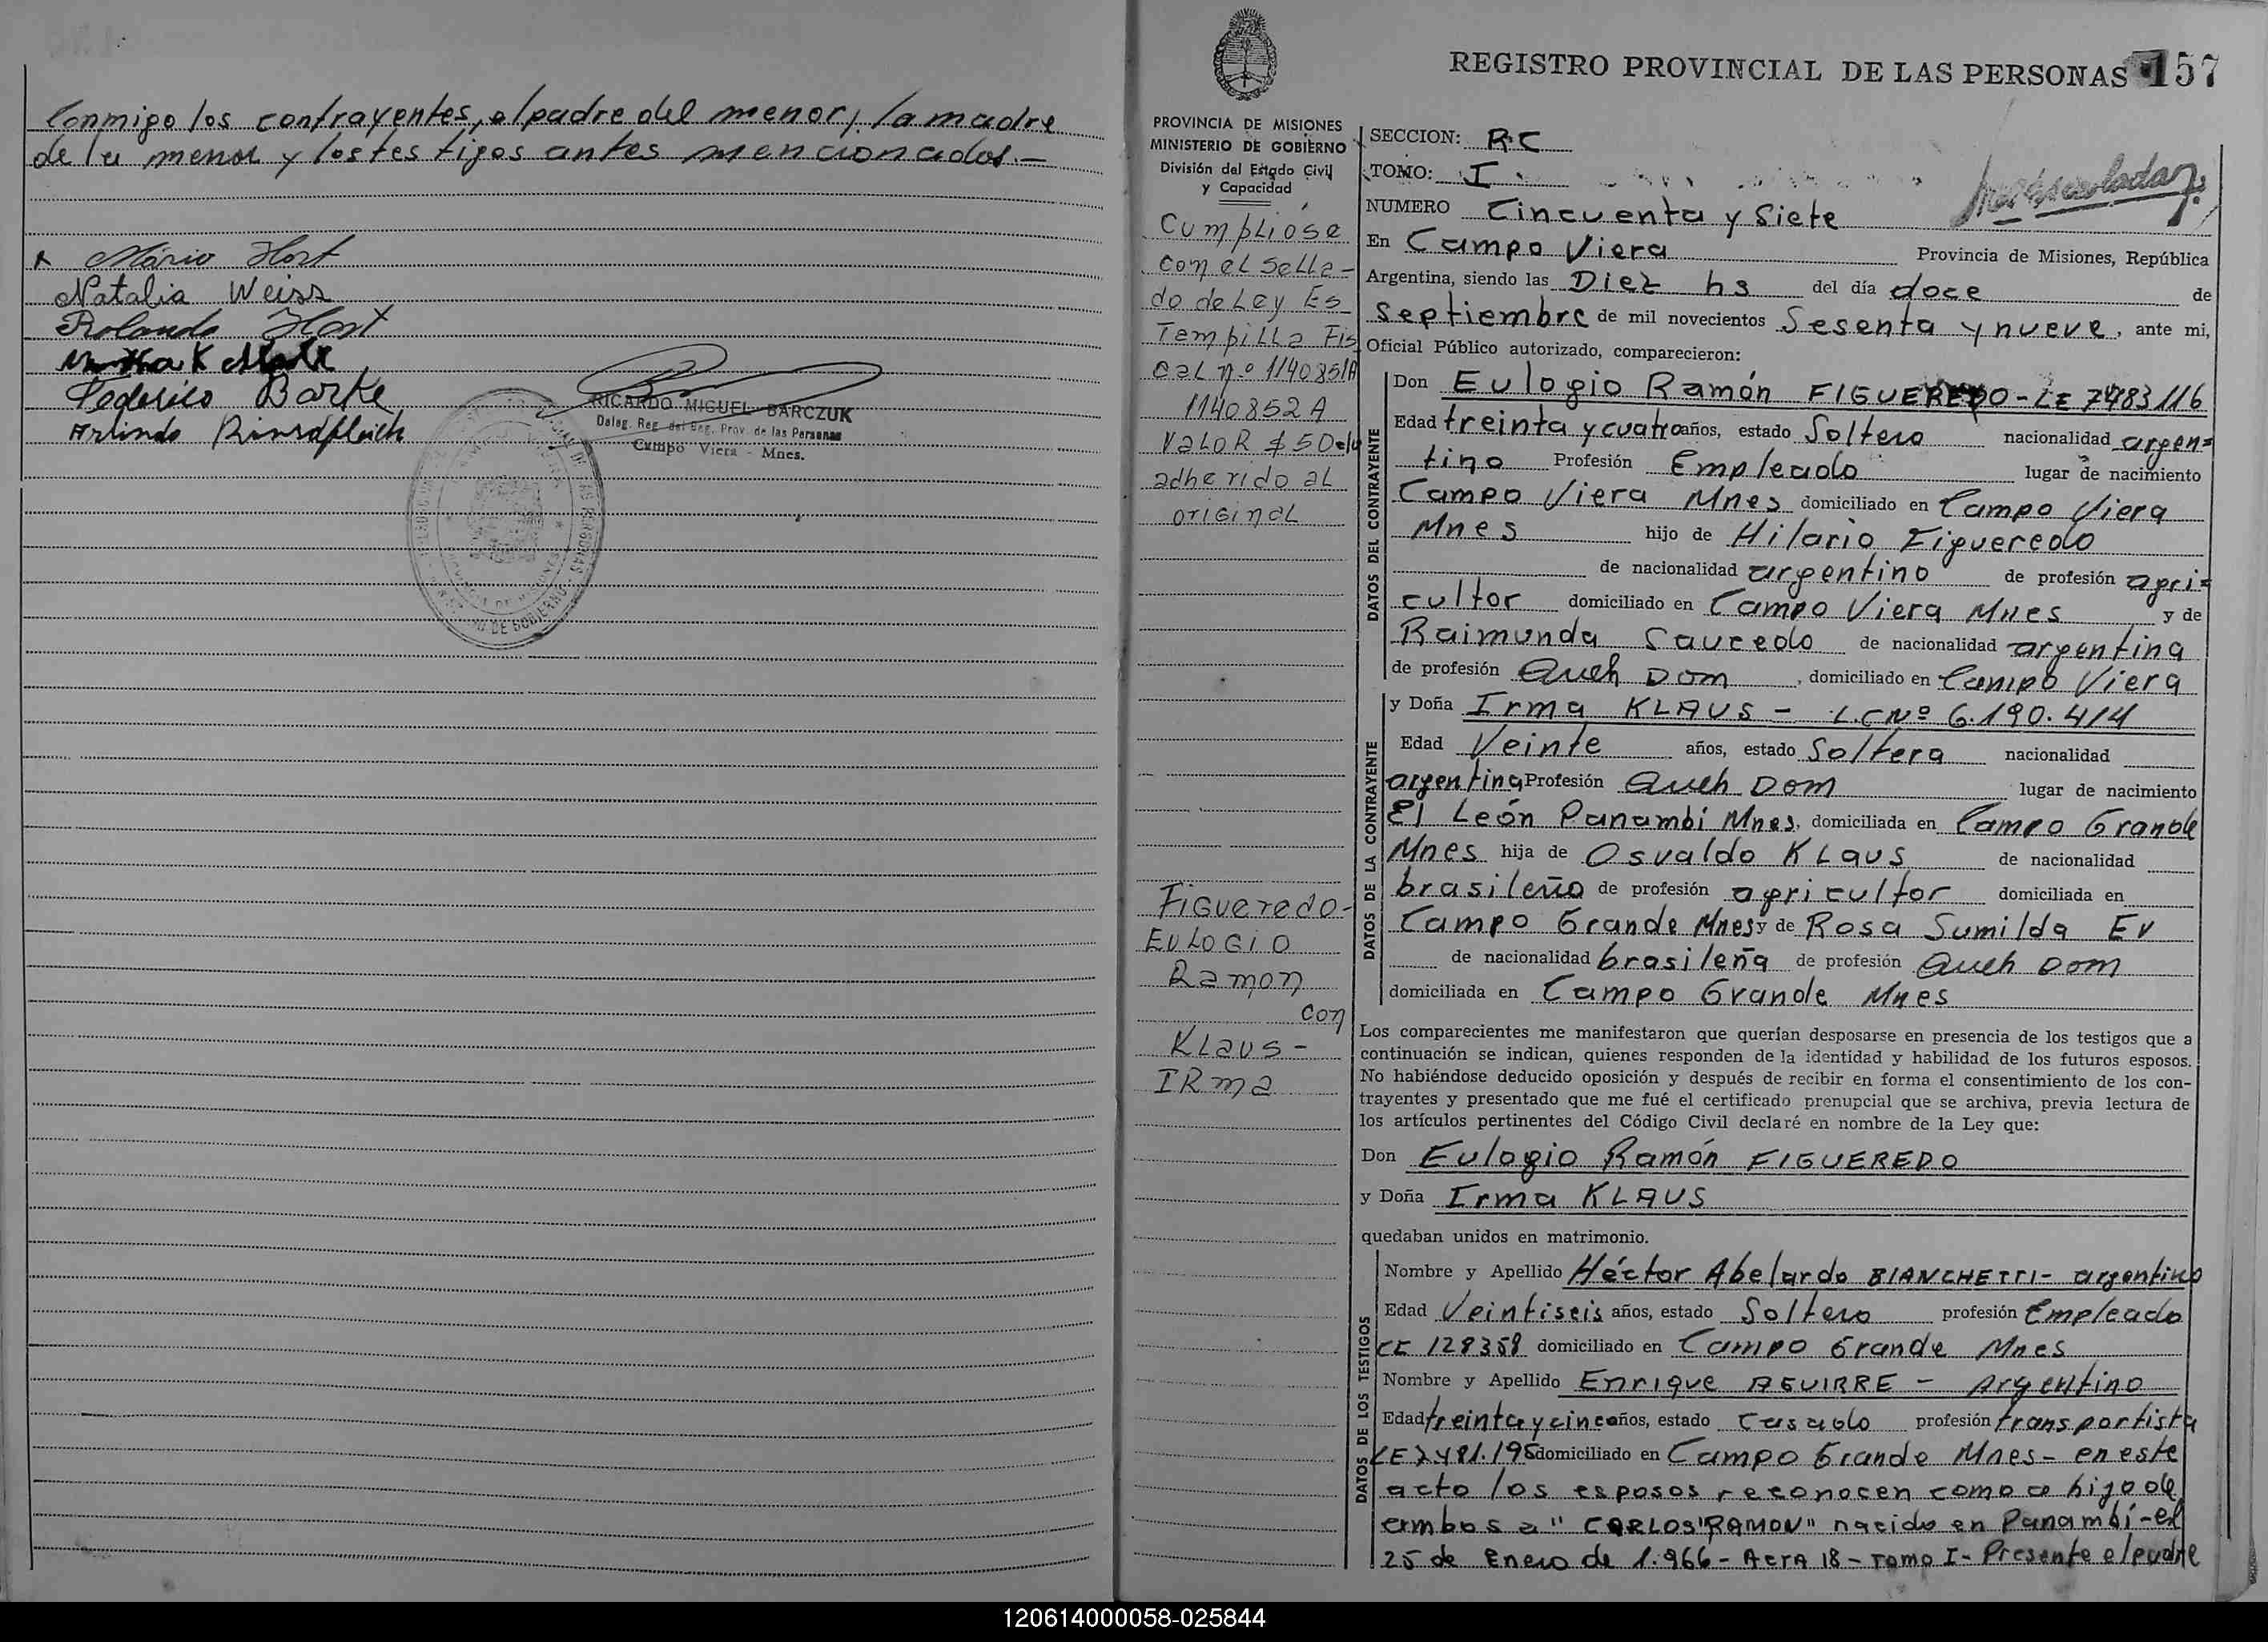 Conmigo los contrayentes, el padre del menor y la madre
de la menor y los testigos antes mencionados.-
Mário Host
Natalia Weiss
Rolando Host
Federico Barke
Arlindo
RICARDO MIGUEL BARCZUK
Deleg. Reg. del Reg. Prov. de las Personas
Campo Viera - Mnes.
REGISTRO PROVINCIAL DE LAS PERSONAS 157
PROVINCIA DE MISIONES
MINISTERIO DE GOBIERNO
División del Estado Civil
y Capacidad
Cumplióse
con el Sella-
do de Ley Es
Tempilla Fis
cal nº 1140851A
1140852A
VALOR $50 c/u
adherido al
original
Figueredo-
EULOGIO
Ramon
con
KLaus-
IRma
SECCION: RC
TOMO: I
NUMERO Cincuenta y Siete
En Campo Viera Provincia de Misiones, República
Argentina, siendo las Diez hs del día doce de
Septiembre de mil novecientos Sesenta y nueve, ante mi,
Oficial Público autorizado, comparecieron:
DATOS DEL CONTRAYENTE
Don Eulogio Ramón FIGUEREDO - LE 7483116
Edad treinta y cuatro años, estado Soltero nacionalidad argen=
tino Profesión Empleado lugar de nacimiento
Campo Viera Mnes domiciliado en Campo Viera
Mnes hijo de Hilario Figueredo
de nacionalidad argentino de profesión agri=
cultor domiciliado en Campo Viera Mnes y de
Raimunda Saucedo de nacionalidad argentina
de profesión Queh Dom, domiciliado en Campo Viera
DATOS DE LA CONTRAYENTE
y Doña Irma KLAUS - L.C Nº 6.190.414
Edad Veinte años, estado Soltera nacionalidad
argentina Profesión Queh Dom lugar de nacimiento
El León Panambi Mnes. domiciliada en Campo Grande
Mnes hija de Osvaldo KLaus de nacionalidad
brasileño de profesión agricultor domiciliada en
Campo Grande Mnes y de Rosa Sumilda Ev
de nacionalidad brasileña de profesión Queh Dom
domiciliada en Campo Grande Mnes
Los comparecientes me manifestaron que querían desposarse en presencia de los testigos que a
continuación se indican, quienes responden de la identidad y habilidad de los futuros esposos.
No habiéndose deducido oposición y después de recibir en forma el consentimiento de los con-
trayentes y presentado que me fué el certificado prenupcial que se archiva, previa lectura de
los artículos pertinentes del Código Civil declaré en nombre de la Ley que:
Don Eulogio Ramón FIGUEREDO
y Doña Irma KLAUS
quedaban unidos en matrimonio.
DATOS DE LOS TESTIGOS
Nombre y Apellido Héctor Abelardo BIANCHETTI - argentino
Edad Veintiseis años, estado Soltero profesión Empleado
CI 128358 domiciliado en Campo Grande Mnes
Nombre y Apellido Enrique AGUIRRE - Argentino
Edad treinta y cinco años, estado casado profesión transportista
LE 7481.195 domiciliado en Campo Grande Mnes - en este
acto los esposos reconocen como a hijo de
ambos a "CARLOS RAMON" nacido en Panambí - el
25 de Enero de 1.966 - ACTA 18 - Tomo I - Presente el padre
120614000058-025844